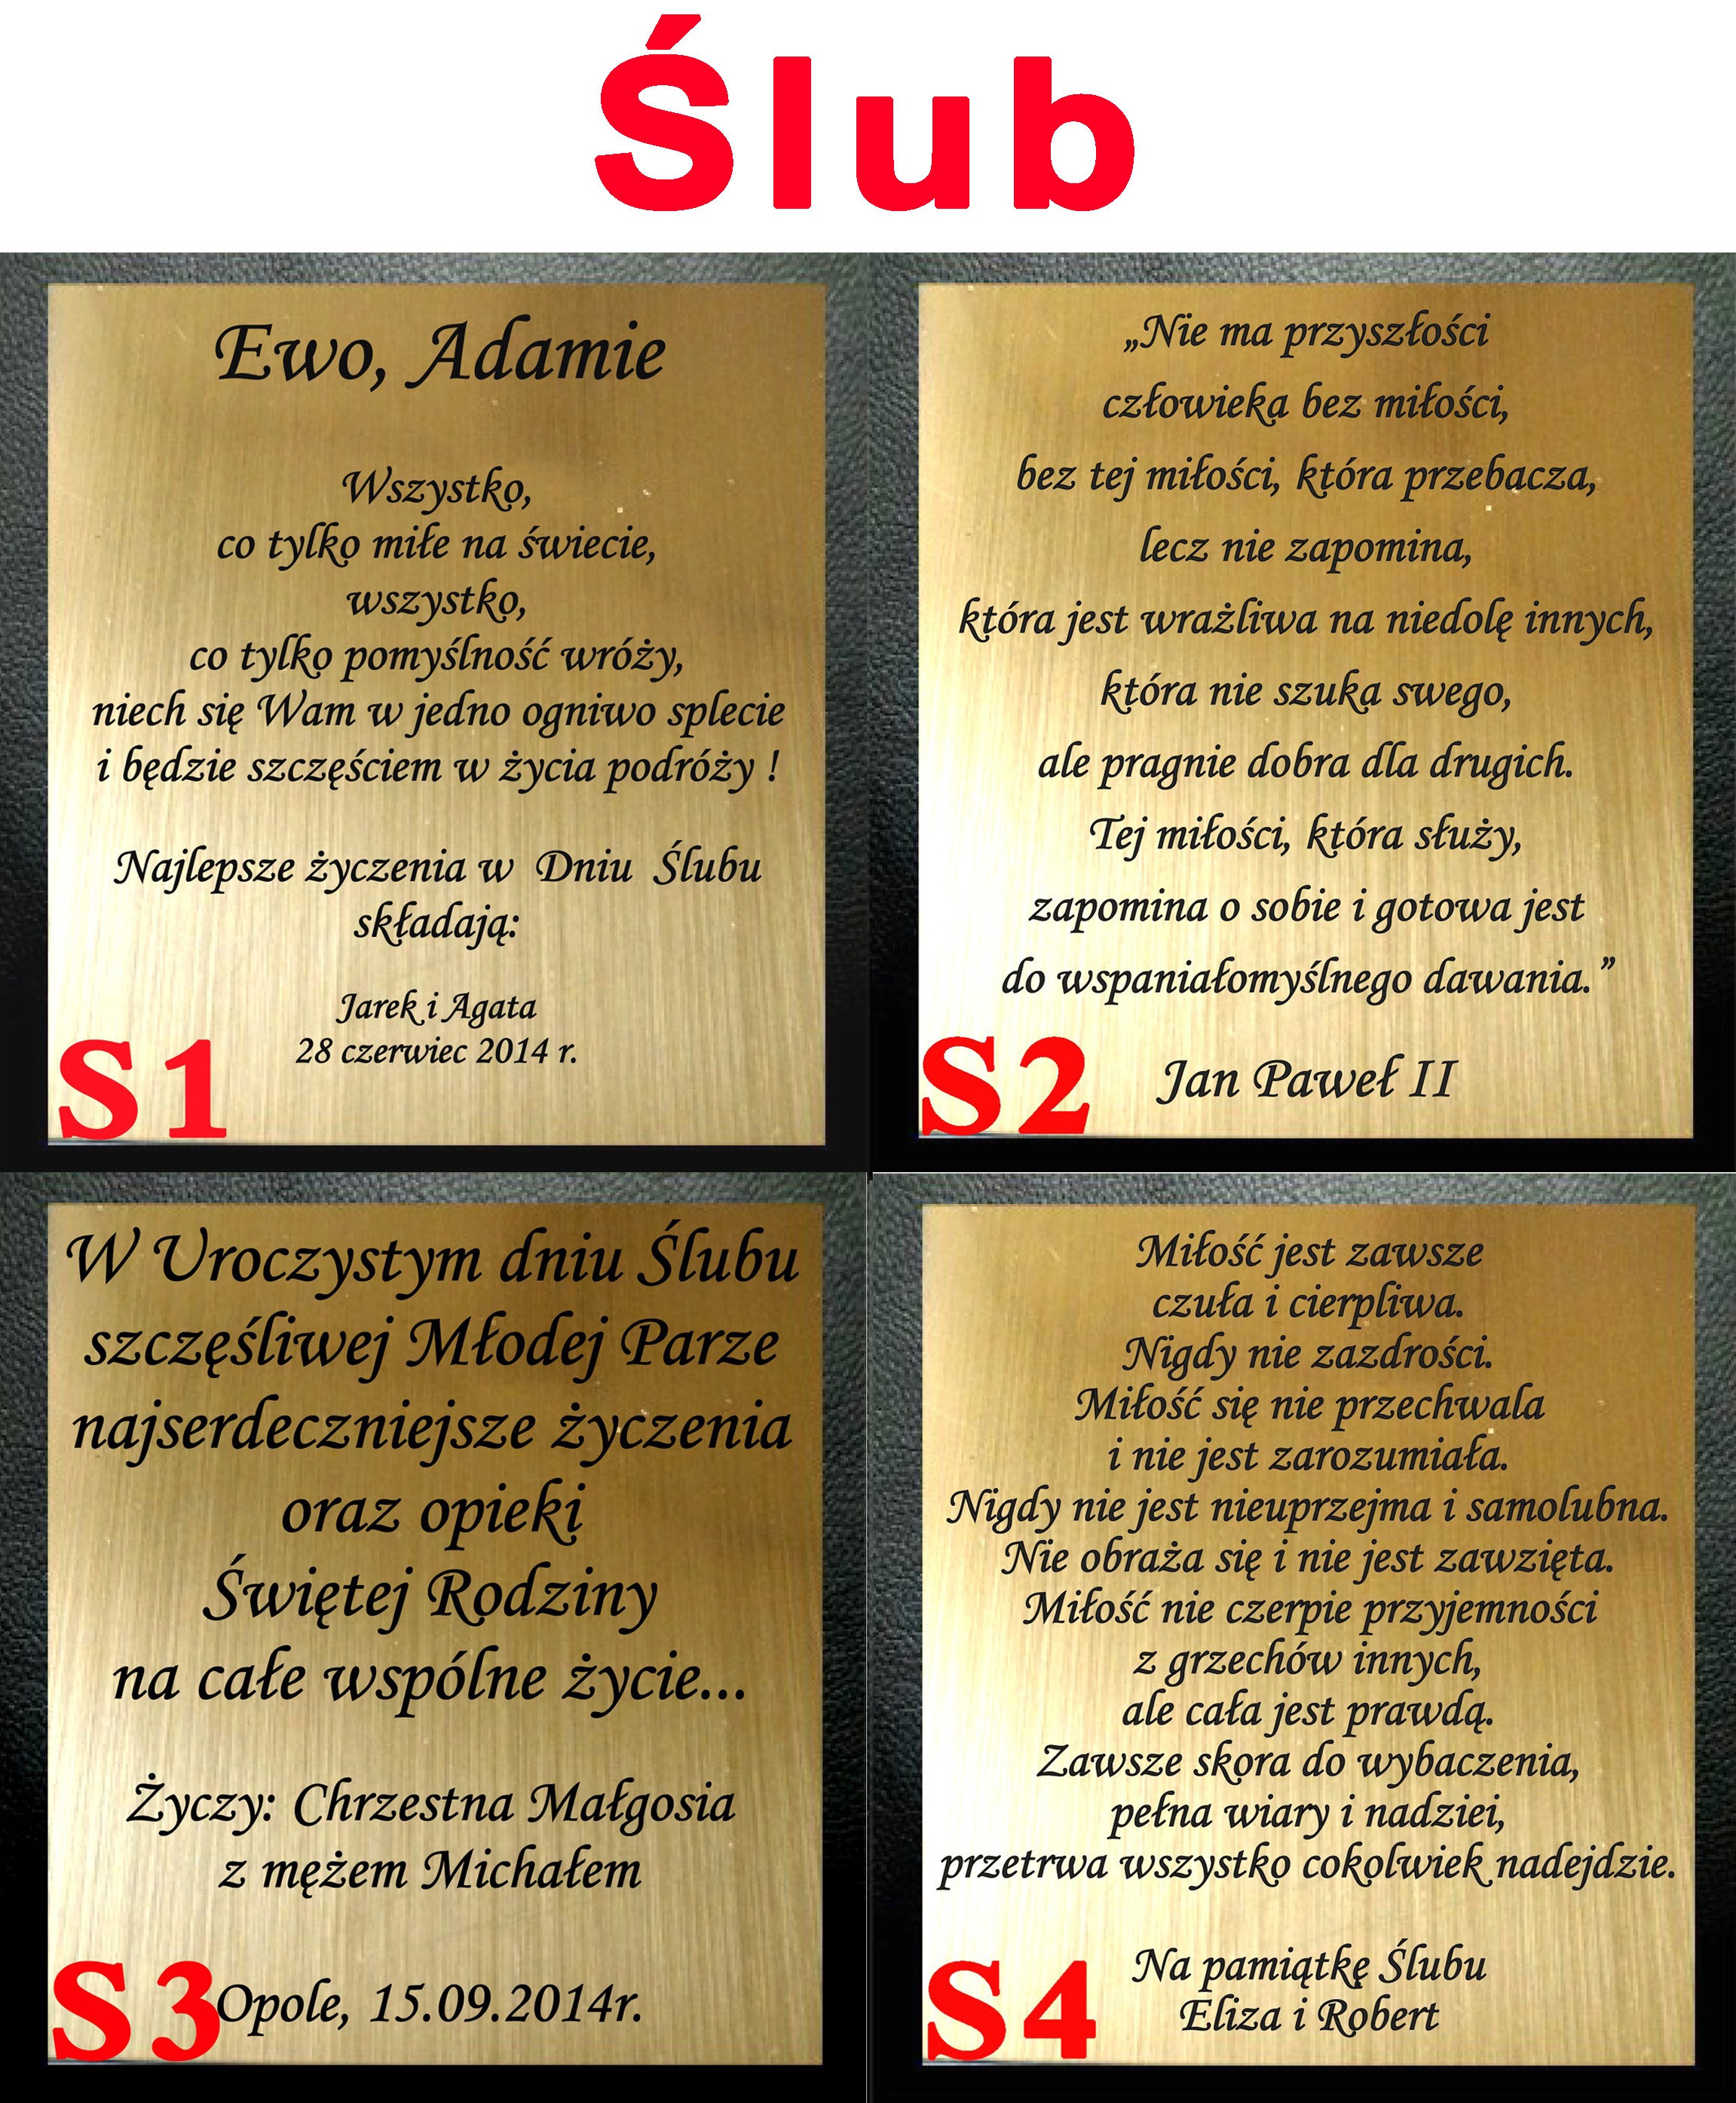 Ślub
Ewo, Adamie
Wszystko,
co tylko miłe na świecie,
wszystko,
co tylko pomyślność wróży,
niech się Wam w jedno ogniwo splecie
i będzie szczęściem w życia podróży !
Najlepsze życzenia w Dniu Ślubu
składają:
Jarek i Agata
28 czerwiec 2014 r.
S1
„Nie ma przyszłości
człowieka bez miłości,
bez tej miłości, która przebacza,
lecz nie zapomina,
która jest wrażliwa na niedolę innych,
która nie szuka swego,
ale pragnie dobra dla drugich.
Tej miłości, która służy,
zapomina o sobie i gotowa jest
do wspaniałomyślnego dawania.”
Jan Paweł II
S2
W Uroczystym dniu Ślubu
szczęśliwej Młodej Parze
najserdeczniejsze życzenia
oraz opieki
Świętej Rodziny
na całe wspólne życie...
Życzy: Chrzestna Małgosia
z mężem Michałem
Opole, 15.09.2014r.
S3
Miłość jest zawsze
czuła i cierpliwa.
Nigdy nie zazdrości.
Miłość się nie przechwala
i nie jest zarozumiała.
Nigdy nie jest nieuprzejma i samolubna.
Nie obraża się i nie jest zawzięta.
Miłość nie czerpie przyjemności
z grzechów innych,
ale cała jest prawdą.
Zawsze skora do wybaczenia,
pełna wiary i nadziei,
przetrwa wszystko cokolwiek nadejdzie.
Na pamiątkę Ślubu
Eliza i Robert
S4